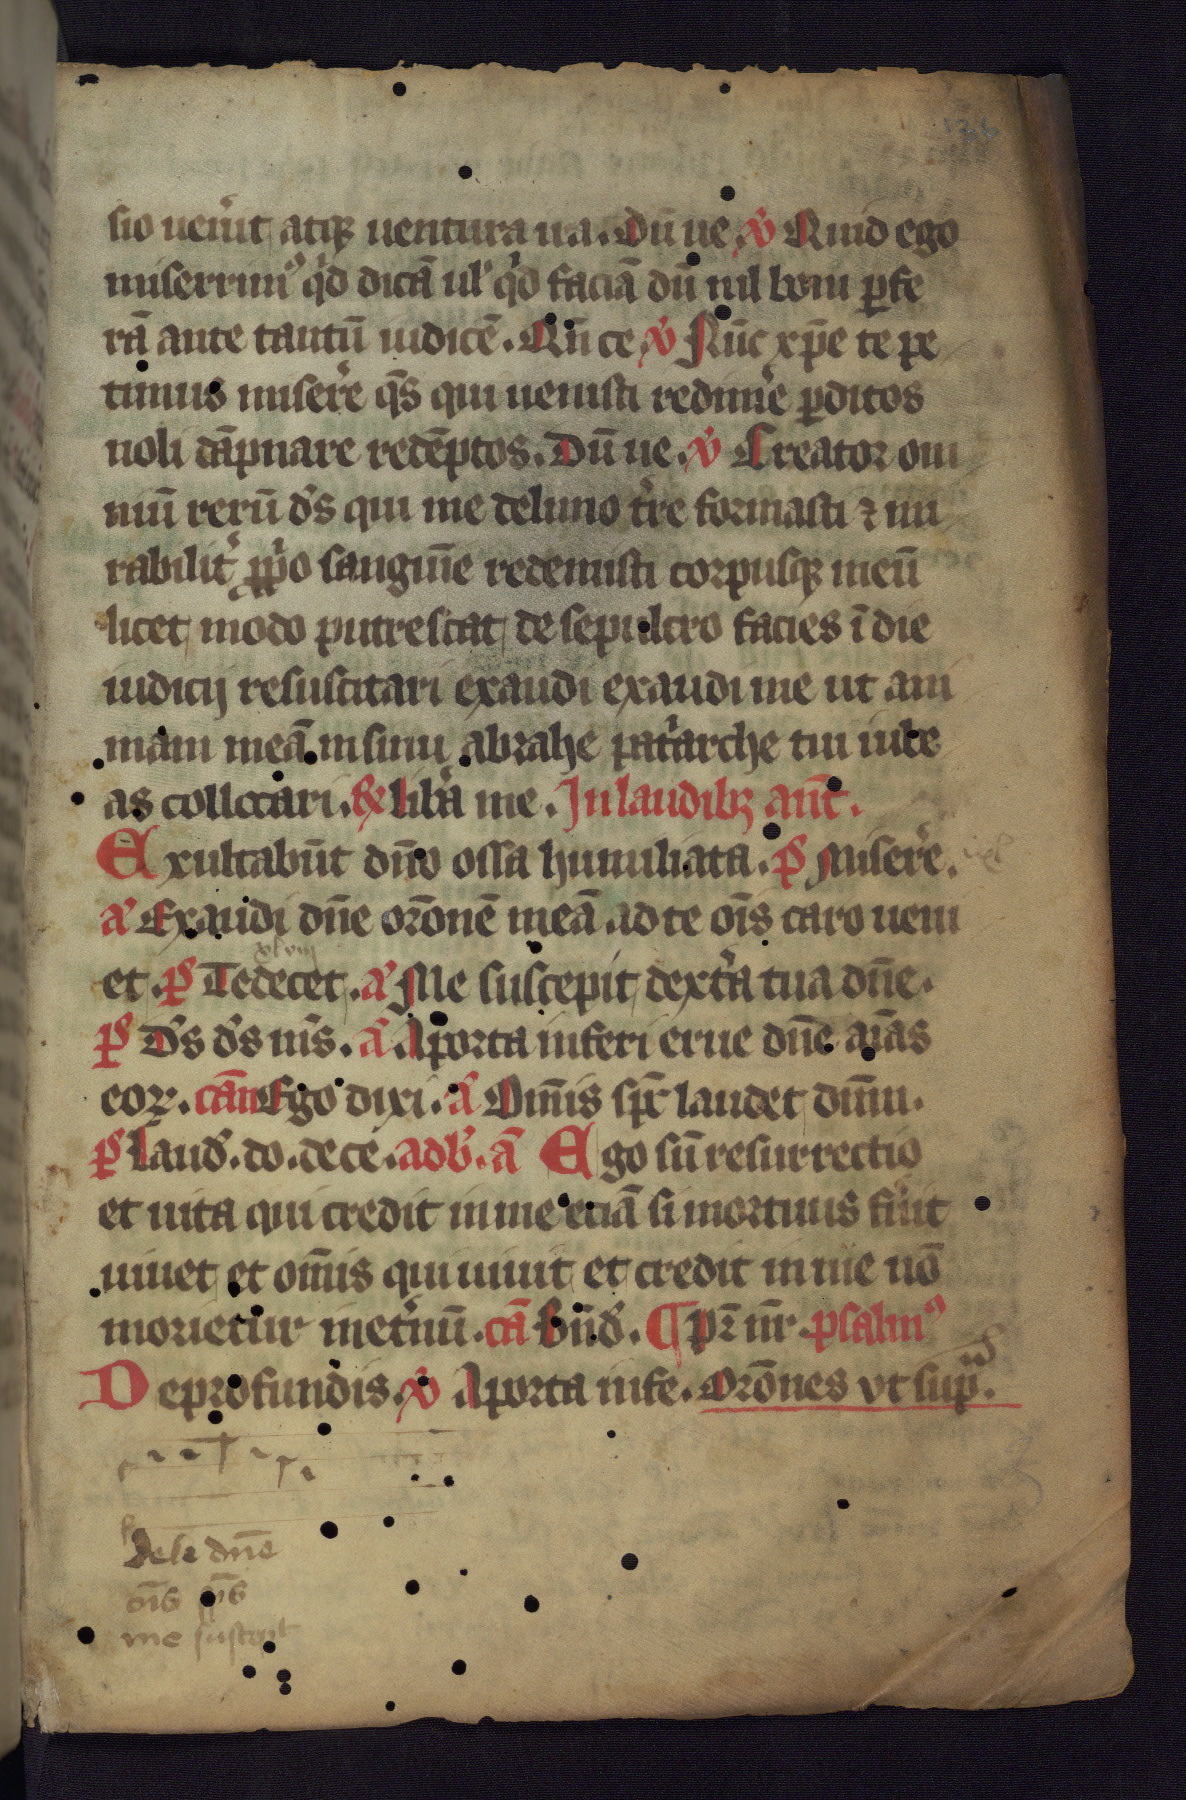 136
sio uen᷒it atqꝫ uentura ira. Dū ue ℣ Quid ego
miserrimꝰ qͥd dicā ul' qͥd faciā dū nil boni ꝑfe
rā ante tantū iudicē. Qn̄ ce ℣ Nūc xp̄e te pe
timus miser᷒e qs̄ qui uenisti redim᷒e ꝑditos
noli dāpnare redēptos. Dū ue. ℣ Creator om
niū rerū ds̄ qui me delimo t᷒re formasti ⁊ mi
rabilit᷒ ꝓpͥo sanguīe redemisti corpusqꝫ meū
licet modo putrescat de sepulcro facies ī die
iudicij resuscitari exaudi exaudi me ut ani
mam meā in sinu abrahe pat᷒arche tui iube
as collocari. ℟ lib᷒a me. In laudibꝫ ant̄.
Exultabūt dn̄o ossa humiliata. p̄s Miser᷒e.
a᷒ Exaudi dn̄e orōnē meā ad te oīs caro ueni
xlviij
et. p̄s Te decet. a᷒ Me suscepit dext᷒a tua dn̄e.
p̄s Ds̄ ds̄ ms̄. a᷒ A porta inferi erue dn̄e aīas
eoꝝ. cām Ego dixi. a᷒ Om̄is sp̄c laudet dn̄m.
p̄s Laud᷒. do. de ce. ad b᷒. a᷒ Ego sū resurrectio
et uita qui credit in me eciā si mortuus fu᷒it
uiuet et om̄is qui uiuit et credit in me nō
morietur inet᷒nū. cā Bn̄d᷒. ¶ pr̄ nr̄ psalmꝰ
De profundis. ℣ A porta infe. Orōnes vt supͣ.
dele dn̄e
me suscepit